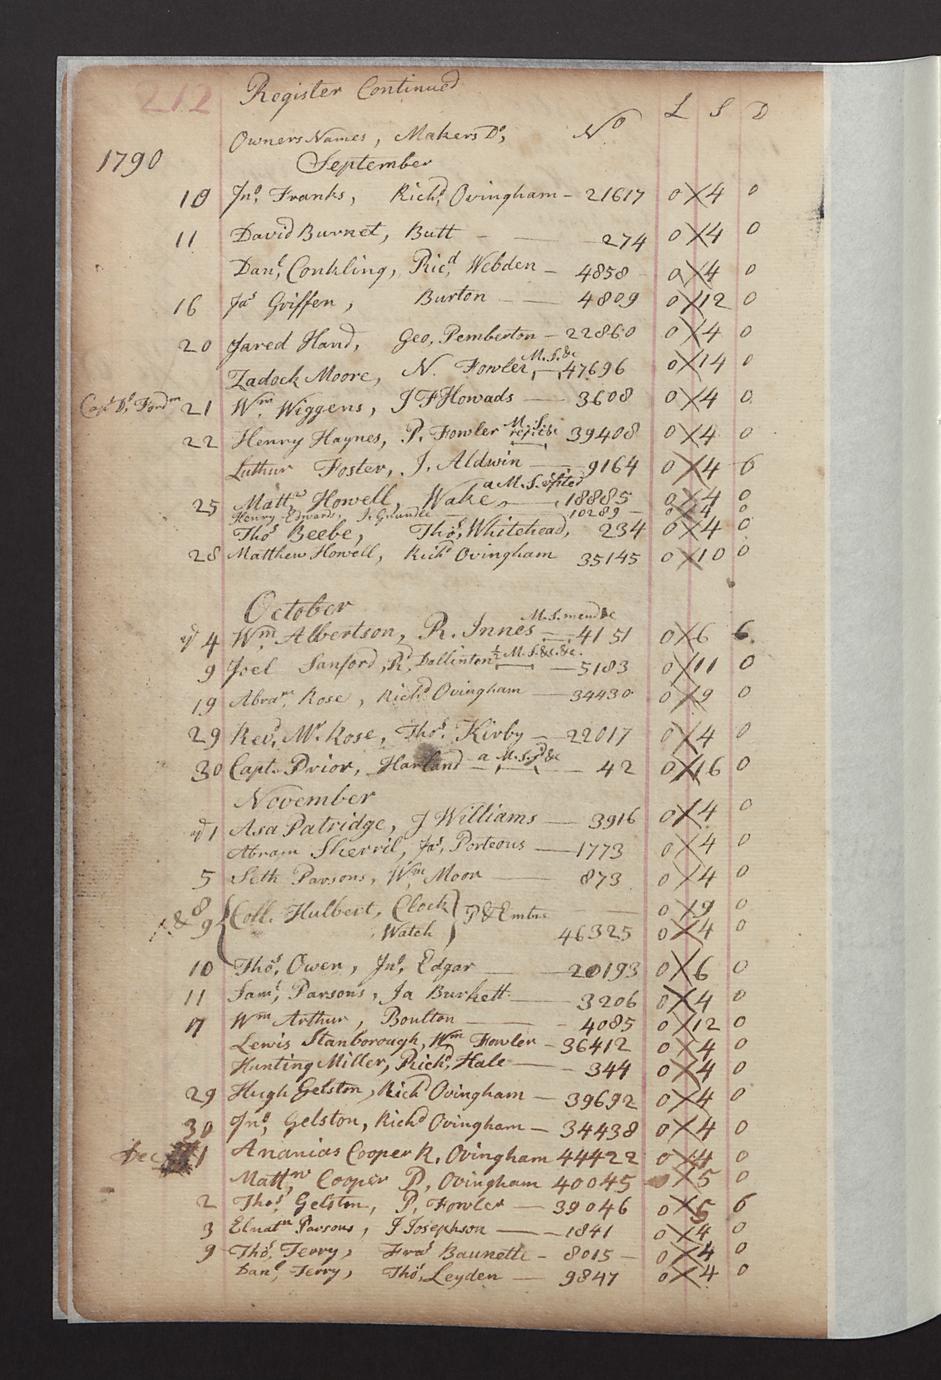 212 Register Continued
L S D
Owners Names, Makers Do, No
1790 September
10 Jno. Franks, Richd Ovingham - 21617 0 4 0
11 David Burnet, Butt - 274 0 4 0
Danl, Conkling, Ricd, Webden - 4858 0 4 0
16 Jas Griffen, Burton - 4809 0 12 0
20 Jared Hand, Geo, Pemberton - 22860 0 4 0
Zadock Moore, N. Fowler, M.S.&c 47696 0 14 0
Capt Ds. Fordm 21 Wm. Wiggens, J F Howads - 3608 0 4 0
22 Henry Haynes, P. Fowler M.S. 39408 0 4 0
Luthur Foster, J. Aldwin - 9164 0 4 6
25 Mattw Howell, Wake, a M.S. 18885 0 4 0
Henry Edwards, J. 10289 - 0 4 0
Thos Beebe, Thos, Whitehead, 234 0 4 0
28 Matthew Howell, Richd Ovingham 35145 0 10 0
October
4 Wm Albertson, R. Innes M.S. mend&c 4151 0 6 6
9 Joel Sanford, Rt. Dallinton ½ M.S.&c.&c. - 5183 0 11 0
19 Abram. Rose, Richd Ovingham - 34430 0 9 0
29 Revd, Mr. Rose, Thos. Kirby - 22017 0 4 0
30 Capt. Prior, Harland - a M.S. &c - 42 0 16 0
November
1 Asa Patridge, J Williams - 3916 0 4 0
Abram Sherril, Jas, Porteous - 1773 0 4 0
5 Seth Parsons, Wm Moor - 873 0 4 0
8 Coll. Hulbert, Clock P & Embrs - 0 9 0
& 9 Watch 46325 0 4 0
10 Thos, Owen, Jno, Edgar - 20193 0 6 0
11 Saml, Parsons, Ja Burkett - 3206 0 4 0
17 Wm Arthur, Boulton - 4085 0 12 0
Lewis Stanborough, Wm Fowler - 36412 0 4 0
Hunting Miller, Richd, Hale - 344 0 4 0
29 Hugh Gelston, Richd Ovingham - 39692 0 4 0
30 Jno, Gelston, Richd Ovingham - 34438 0 4 0
Dec 1 Ananias Cooper R, Ovingham 44422 0 4 0
Mattw Cooper P, Ovingham 40045 5 0
2 Thos, Gelston, P, Fowler - 39046 0 5 6
3 Elnatn Parsons, J Josephson - 1841 0 4 0
9 Thos, Terry, Fras Baunette - 8015 - 0 4 0
Danl, Terry, Thos, Leyden - 9847 0 4 0